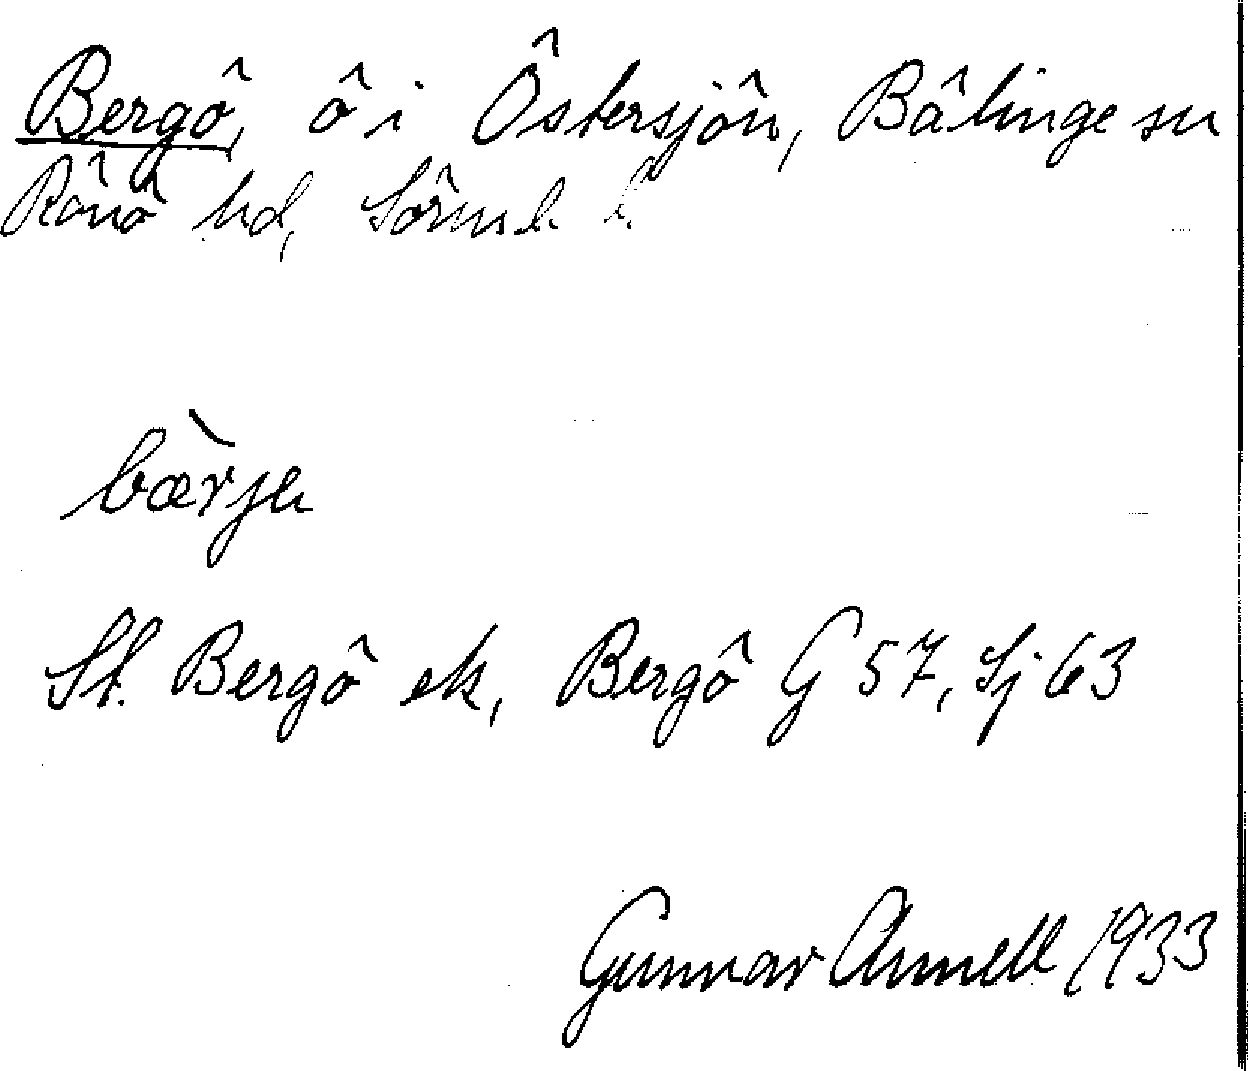 Bergö, ö i Östersjön, Bälinge sn
Rönö hd, Sörml. l.
bærjə
St. Bergö ek, Bergö G 57, Sj 63
Gunnar Annell 1933